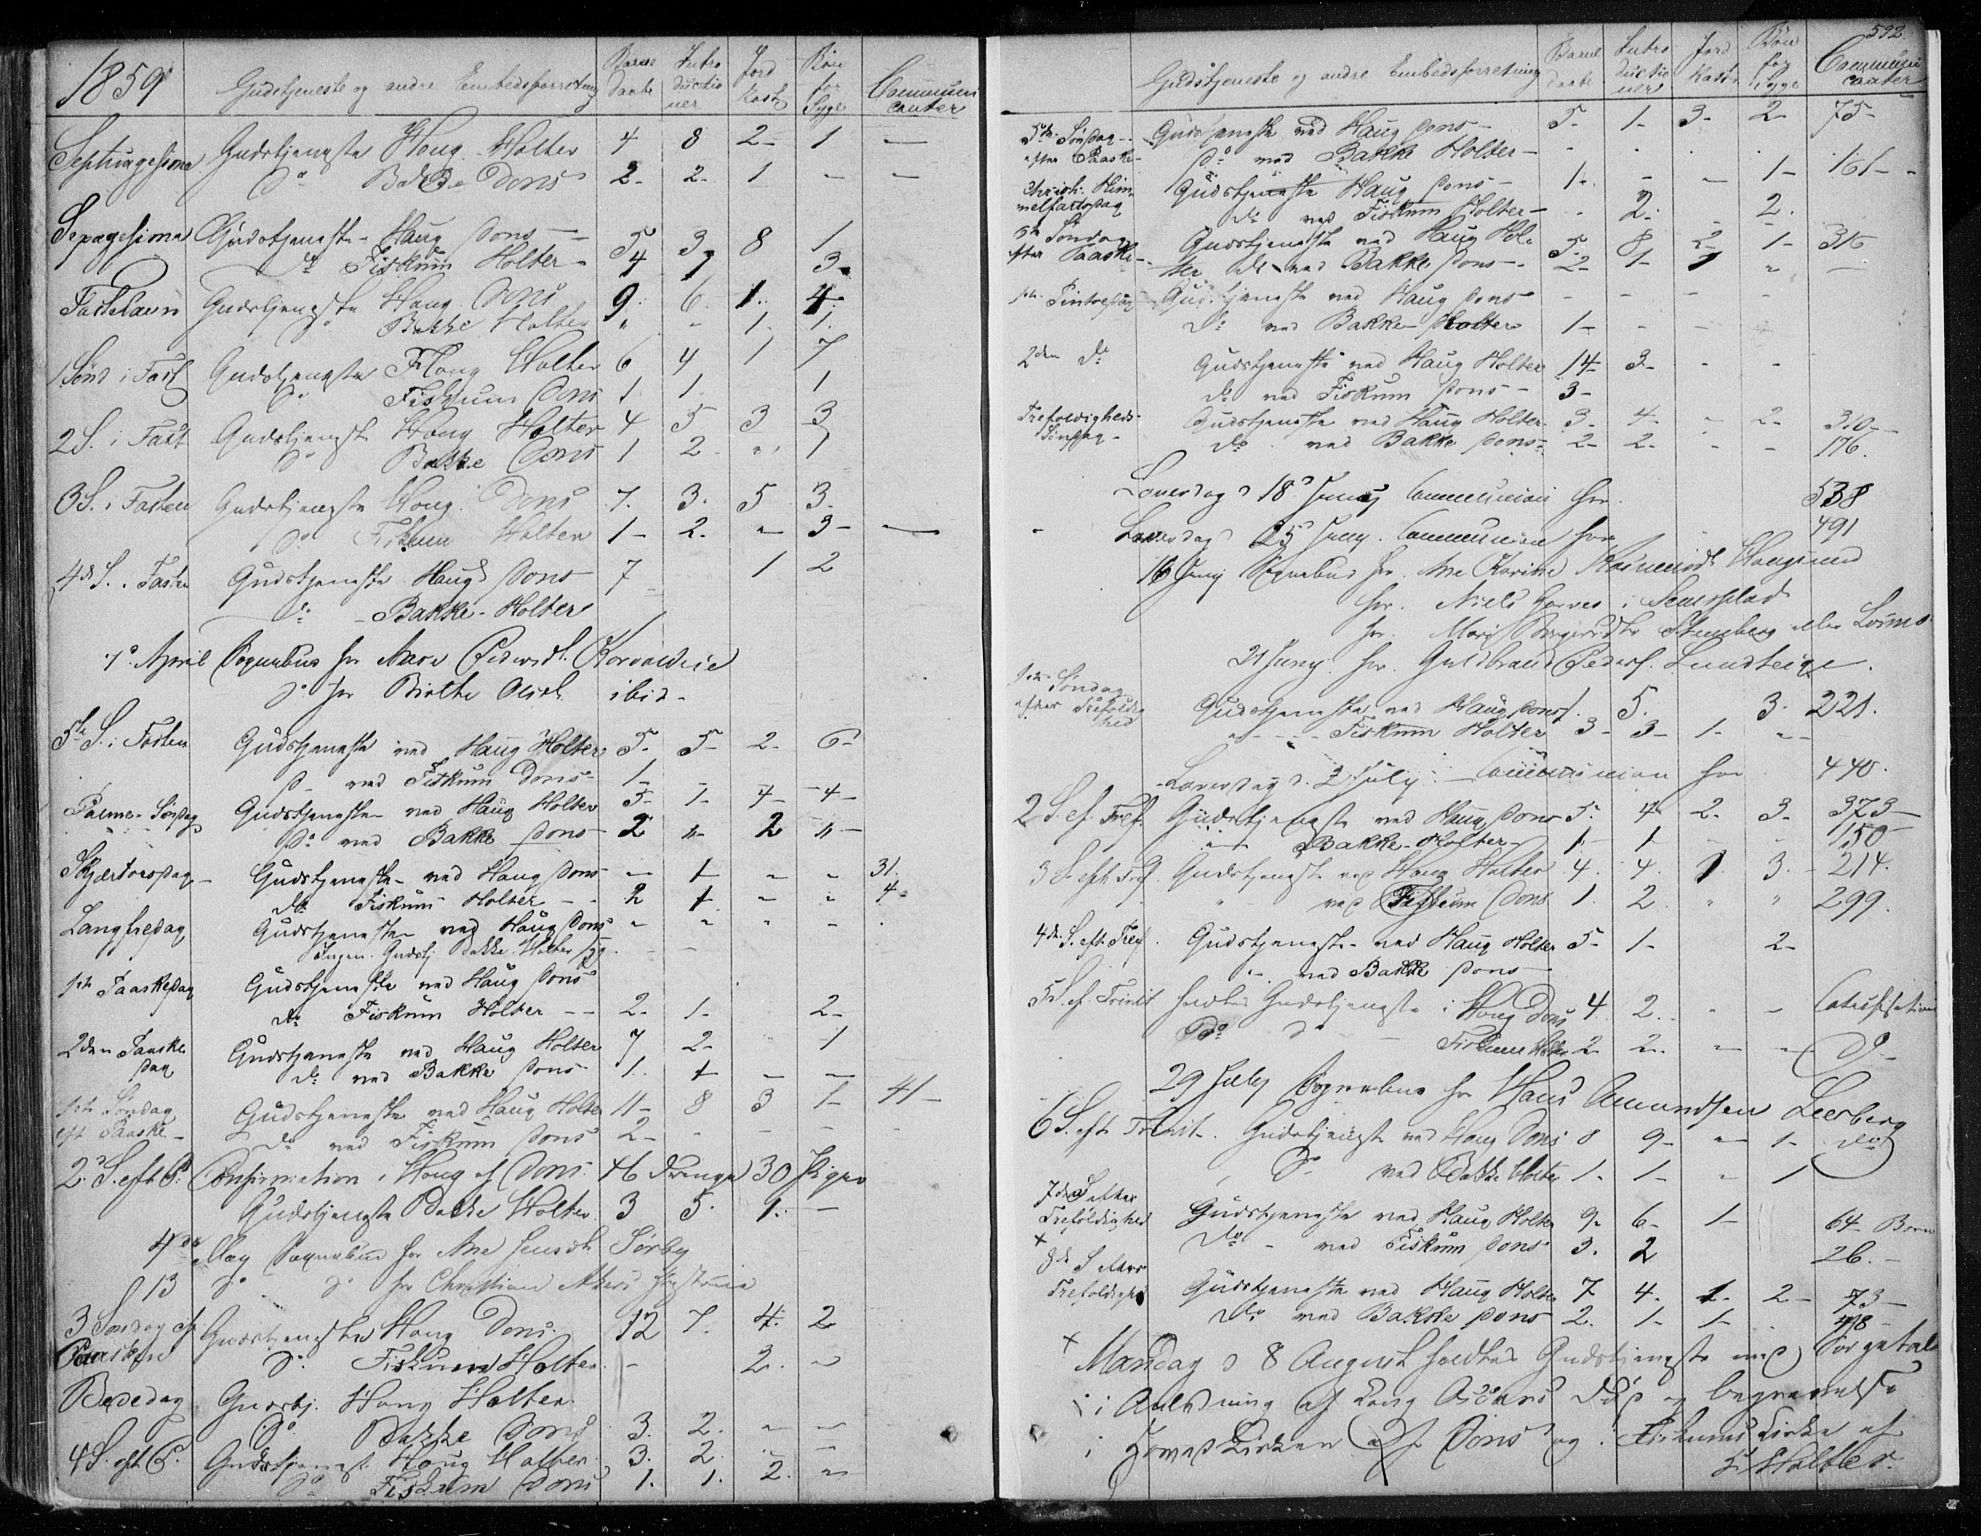 1859
Gudstjeneste og andre Embedsforretning
Barne Daabe
Introductioner
Jord Kast
Bøn for Syge
Communicanter
Septuagesima Gudstjeneste Houg. Holter 4 8 2- 1 —
Do Bakke Dons 2- 2- 1 — —
Sexagesima Gudstjeneste- Haug Dons 5 3 8 1
do Fiskum Holter - 4 1 3.
Fastelavn Gudstjeneste Houg. Dons 9. 6. 1. 4.
Do Bakke Holter " - 1. 1.
1 Sønd i Fast Gudstjeneste Houg Holter 6 4 1 7
Do Fiskum Dons 1. 1. 1
2 S. i Fast Gudstjeneste Houg Holter 4 5 3 3
Do Bakke Dons 1 2 " 1
3 S. i Fasten Gudstjeneste Houg. Dons 7. 3. 5 3.
Do Fiskum Holter 1- 2. - 3- —
4de S. i Fasten Gudstjeneste Haug Dons 7 1 2
do Bakke- Holter
7o April Sognebud for Pedersdt. Korvaldeie
Do for Birthe Olsdt. ibid-
5te S. i Fasten Gudstjeneste ved Haug Holter 5- 5- 2- 6-
Do ved Fiskum Dons- 1- - - -
Palme-Søndag Gudstjeneste- ved Haug Holter 5- 1- 4- 4-
Do ved Bakke Dons- 2 "- 2 "-
Skjærtorsdag- Gudstjeneste- ved Haug Dons- - 1 - - 31.
do Fiskum Holter - - 2 1 - - 4-
Langfredag Gudstjeneste- ved Haug Dons - " " -
Ingen Gudstj. Bakke. Holter syg-
1ste Paaskedag Gudstjeneste ved Haug Dons
do Fiskum Holter -- 2- 1- 2-
2den Paaskedag Gudstjeneste ved Haug Holter 7 2- 1
do ved Bakke Dons- 1. 1 - -
1ste Søndag eft Paaske- Gudstjeneste ved Haug Holter 11- 8 3 1- 41-
do ved Fiskum Dons 2- - - - -
2. S. eft P. Confirmation i Houg af Dons. 46 Drenge 30 Piger
Gudstjeneste Bakke Holter 3 5. 1. -
4de May Sognebud for Ane Jensdt. Sørby
13 do do for Christian
3 Søndag ef. Paasken Gudstjeneste Houg Dons. 12 7. 4. 2
Do. Fiskum Holter. - 2. -
Bededag Gudstj. Houg Holter.
Do Bakke Dons 3. 2. - -
4 S. eft P. Gudstjenest. Houg Holter. 3. 2. - -
Do Fiskum Dons 1. 1. 2. -
592.
Gudstjeneste og andre Embedsforretning
Barne Daabe
Introductioner
Jord Kast
Bøn for Syge
Communicanter
5te Søndag- efter Paaske- Gudstjeneste ved Haug Dons- 5- 1- 3- 2- 75-
Do ved Bakke Holter- - . . . .
Christi Himmelfartsdag Gudstjeneste Haug Dons- 1- - - 1- 161-
do ved Fiskum Holter- - 2. 2.
6te Søndag efter Paaske- Gudstjeneste ved Haug Hol- 5- 8 2- 1- 316
ter do ved Bakke Dons- 2- 1- 1 " -
1ste Pintsedag Gudstjeneste ved Haug Dons- - - - -
do ved Bakke- Holter 1- - - -
2den do Gudstjeneste ved Haug Holter 14- 3- - -
do ved Fiskum Dons- 3-
Trefoldigheds-Søndag- Gudstjeneste ved Haug Holter 3- 4- - 2- 310-
do ved Bakke Dons- 2- 2- - - 176.
Løverdag d 18de Juny Communion for 538
Løverdag d 25 Juny. Communion for 491
16 Juny Sognebud for. Ane Karine Haugsund
for. Niels
for. Stenberg eller
21 Juny. for. Guldbrand Peders. Lundteige.
1ste Søndag efter Trefoldighed Gudstjeneste ved Haug Dons 1. 5. 3. 221.
Fiskum Holter 3- 3- 1- "-
Løverdag d. 2 July. Communion for 440.
2 S. ef. Tref. Gudstjeneste ved Haug Dons 5. 4 2. 3. 373-
" Bakke- Holter 1- 1 - - 150
3 S. eft Tref. Gudstjeneste ved Houg Holter 4. 4. 1. 3. 214.
" ved Fiskum Dons 1. 2. " " 299.
4de S. eft. Tref. Gudstjeneste- ved Haug Holter 5- 1- 2-
" ved Bakke Dons-
5 S. ef. Trinit holdtes Gudstjeneste i Houg Dons 4. 2. " - Catechisation
Do Do - Fiskum Holter 2- 2- - - Do-
29 July Sognebud for Hans Amundsen Leerberg
6 S. eft Trinit. Gudstjeneste ved Houg Dons 8 9- " 1- do
Do ved Bakke Holter 1. 1- " 1
7de S efter Trefoldighed Gudstjeneste ved Haug Holter 9- 6- 1- 64- Børn
do - ved Fiskum Dons- 3. 2 26.-
8de S efter Trefoldighd Gudstjeneste ved Haug Holter 7 4. 1. 2- 73-
do ved Bakke Dons 2. 1- 1- - 48-
Mandag d 8 August holdtes Gudstjeneste med Sørgetale
i Anledning af Kong Oscars Død og Begravelse
i Hoved Kirken af Dons og i Fiskums Kirke af
Holter.